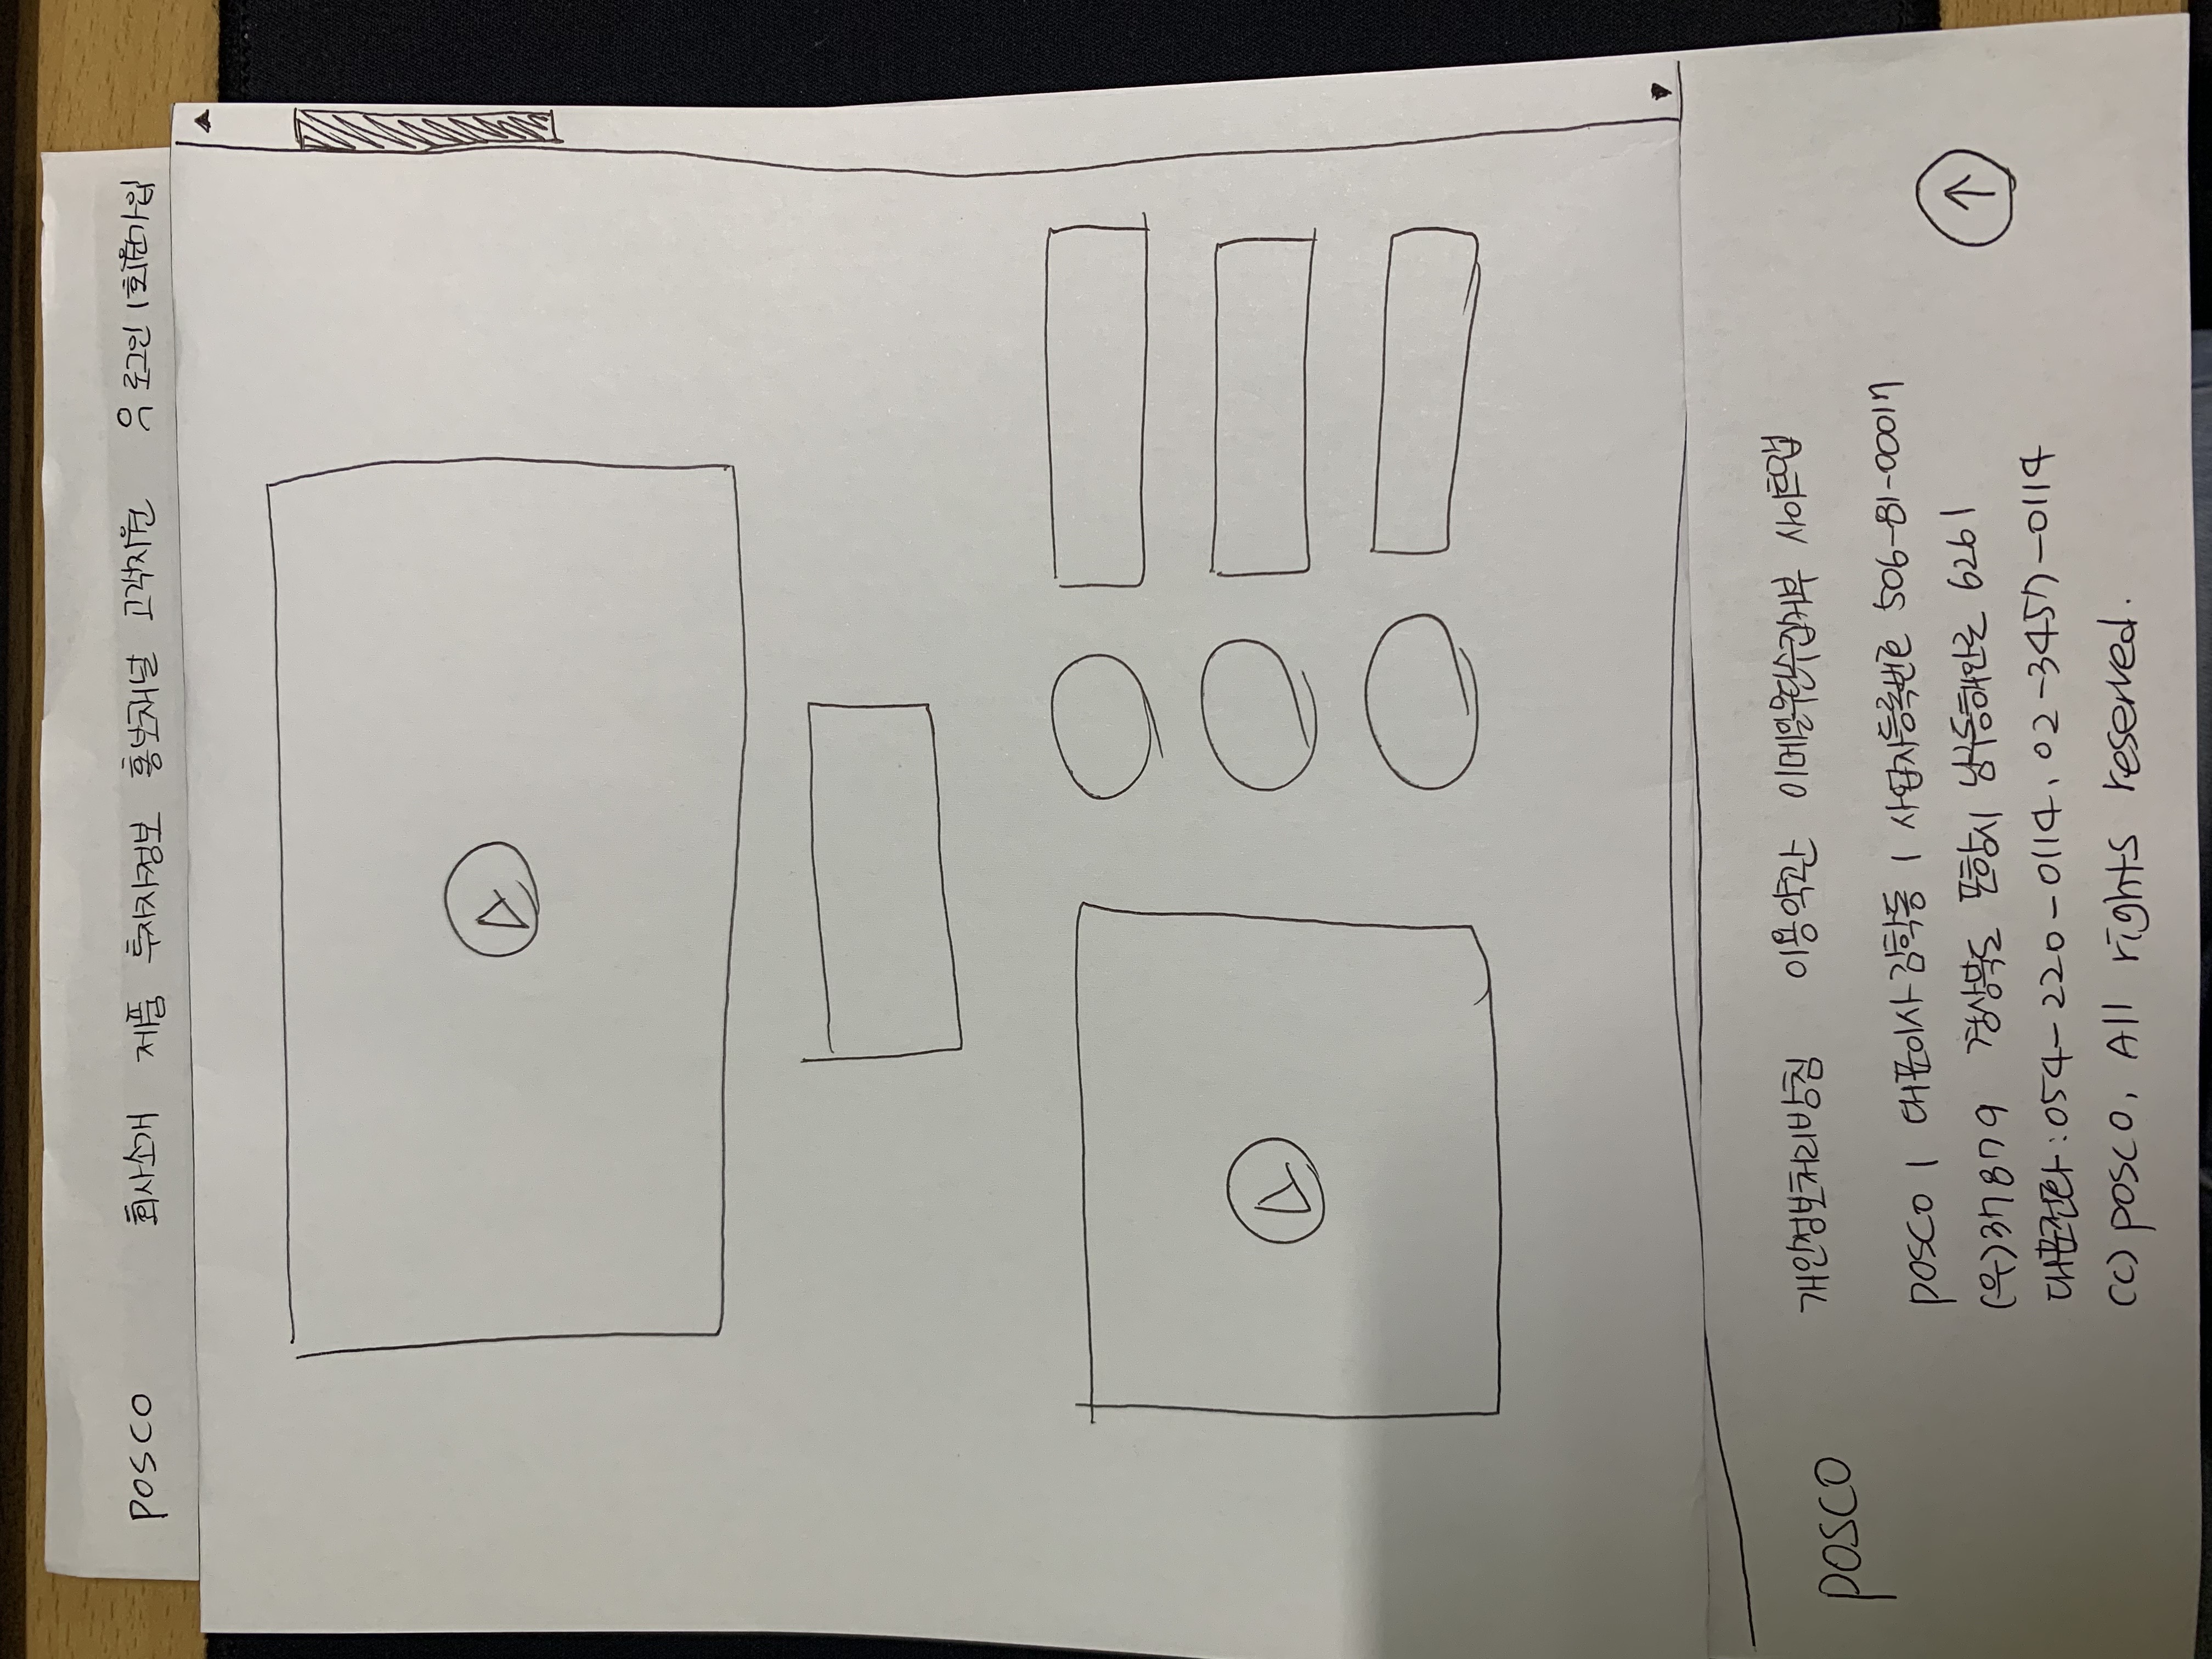 POSCO 회사소개 제품 투자자정보 홍보채널 고객지원 로그인 | 회원가입
개인정보처리방침 이용약관 이메일무단수집거부 사이트맵
POSCO
POSCO | 대표이사 김학동 | 사업자등록번호 506-81-00017
(우)37879 경상북도 포항시 남구동해안로 6261
대표전화 : 054-220-0114, 02-3457-0114
(C) POSCO, All rights reserved.